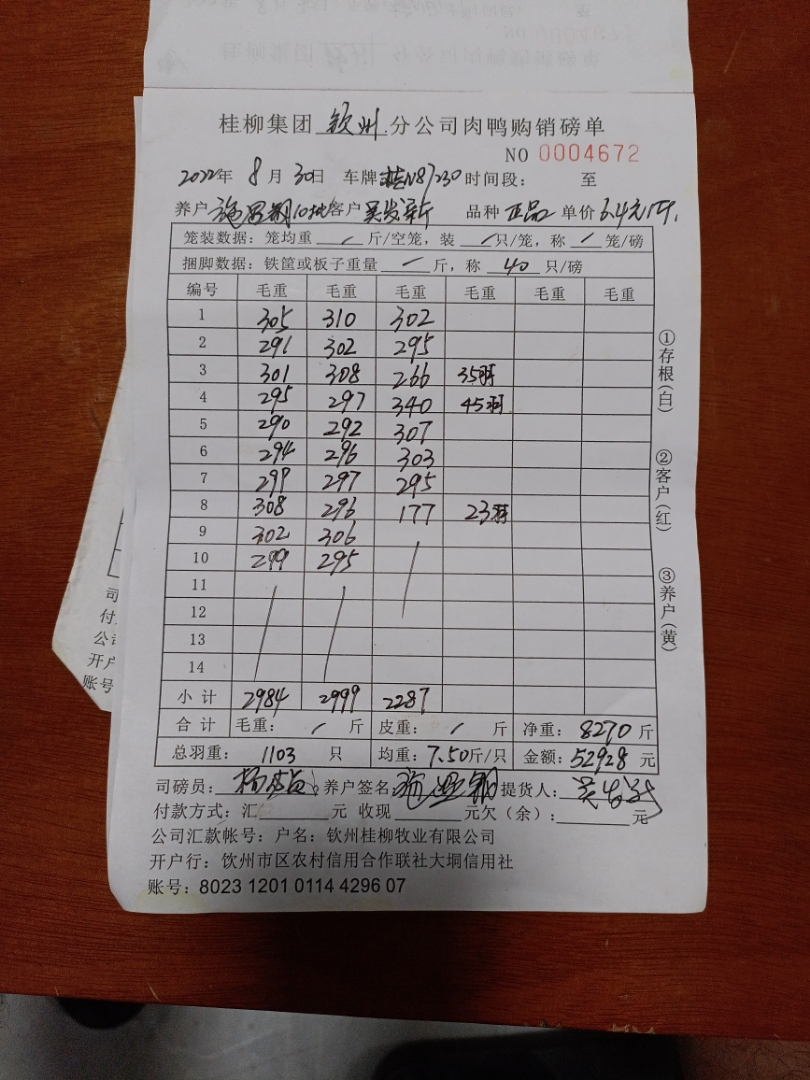 桂柳集团 钦州 分公司肉鸭购销磅单
NO 0004672
2022年 8月30日 车牌 桂N87230 时间段: 至
养户 10批 客户 吴发新 品种 正品 单价 6.4元/斤
笼装数据:笼均重 / 斤/空笼,装 / 只/笼,称 / 笼/磅
捆脚数据:铁筐或板子重量 一 斤,称 40 只/磅
编号 毛重 毛重 毛重 毛重 毛重 毛重
1 305 310 302
2 291 302 295
3 301 308 266 35羽
4 295 297 340 45羽
5 290 292 307
6 294 296 303
7 299 297 295
8 308 296 177 23羽
9 302 306
10 299 295
11
12
13
14
小计 2984 2999 2287
合计 毛重: / 斤 皮重: / 斤 净重: 8270 斤
总羽重: 1103 只 均重: 7.50斤/只 金额: 52928 元
司磅员: 养户签名 提货人:
付款方式:汇 元 收现 元欠(余): 元
公司汇款帐号:户名:钦州桂柳牧业有限公司
开户行:饮州市区农村信用合作联社大垌信用社
账号:8023 1201 0114 4296 07
①存根(白)
②客户(红)
③养户(黄)
司
付
公
开户
账号